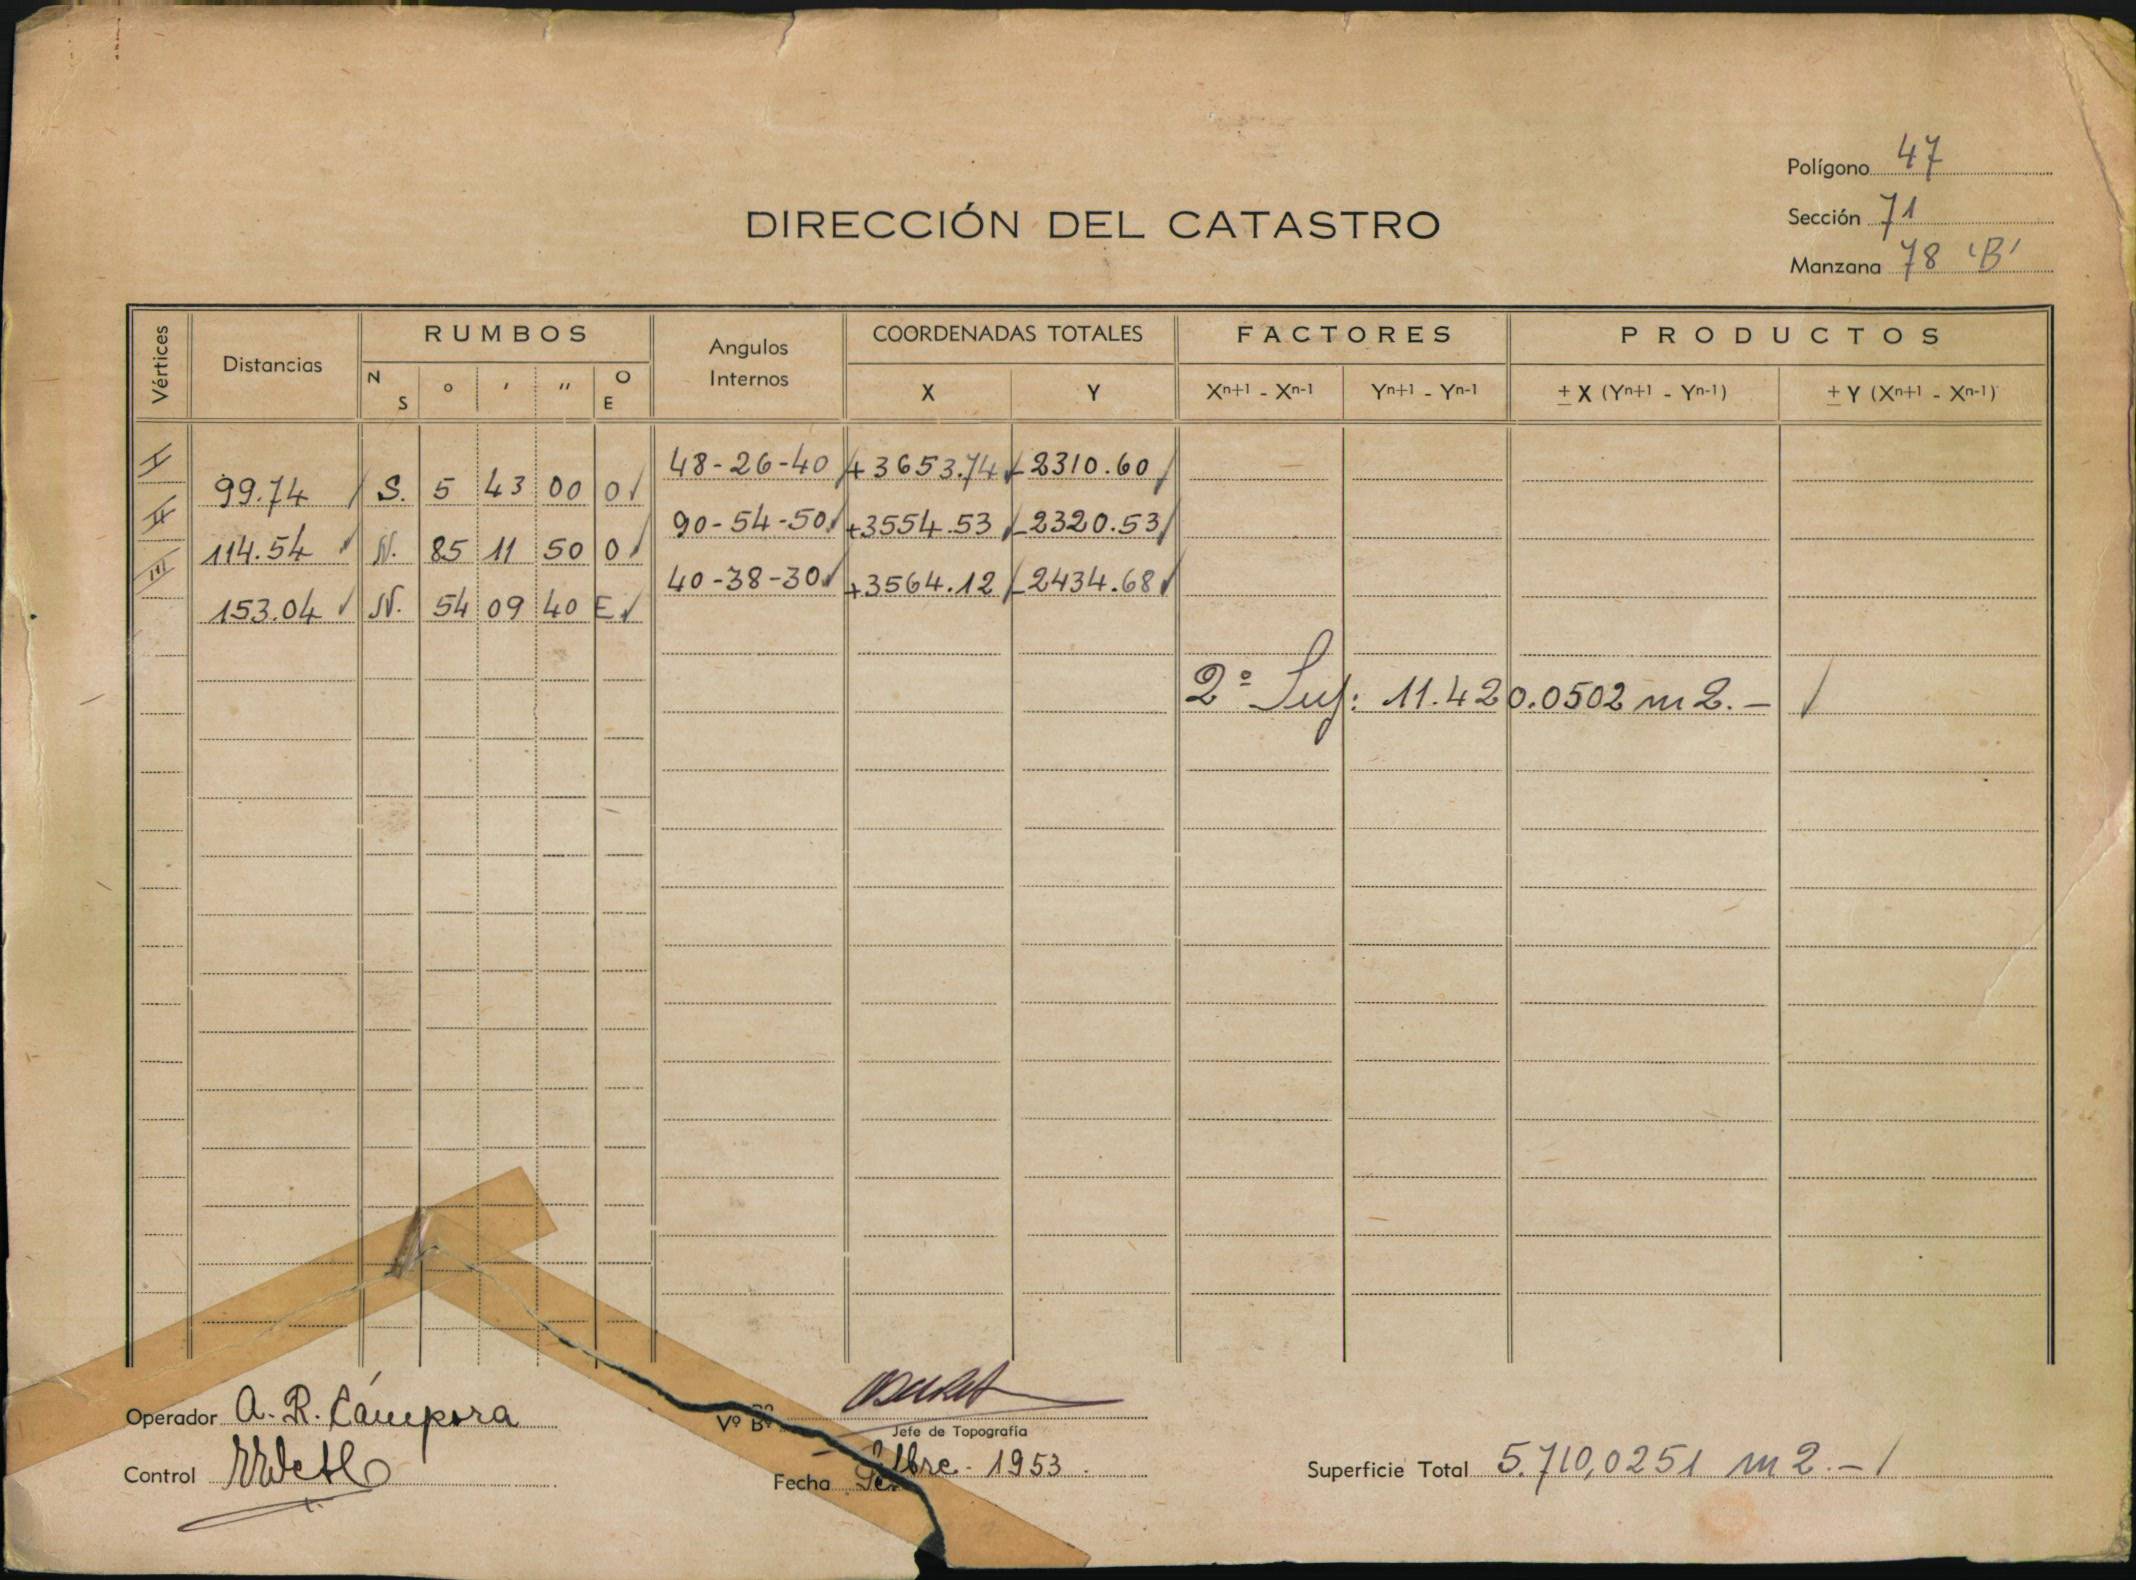 Polígono 47
DIRECCIÓN DEL CATASTRO
Sección 71
Manzana 78 'B'
Vértices Distancias RUMBOS Angulos Internos COORDENADAS TOTALES FACTORES PRODUCTOS
N S ° ' " O E X Y Xn+1 - Xn-1 Yn+1 - Yn-1 ± X (Yn+1 - Yn-1) ± Y (Xn+1 - Xn-1)
I 48-26-40 +3653.74 -2310.60
99.74 S. 5 43 00 O
II 90-54-50 +3554.53 -2320.53
114.54 N. 85 11 50 O
III 40-38-30 +3564.12 -2434.68
153.04 N. 54 09 40 E
2º Sup: 11.420.0502 m2.-
Operador A. R. Cámpora Vº Bº
Jefe de Topografía
Control Fecha 1953. Superficie Total 5.710,0251 m2.-